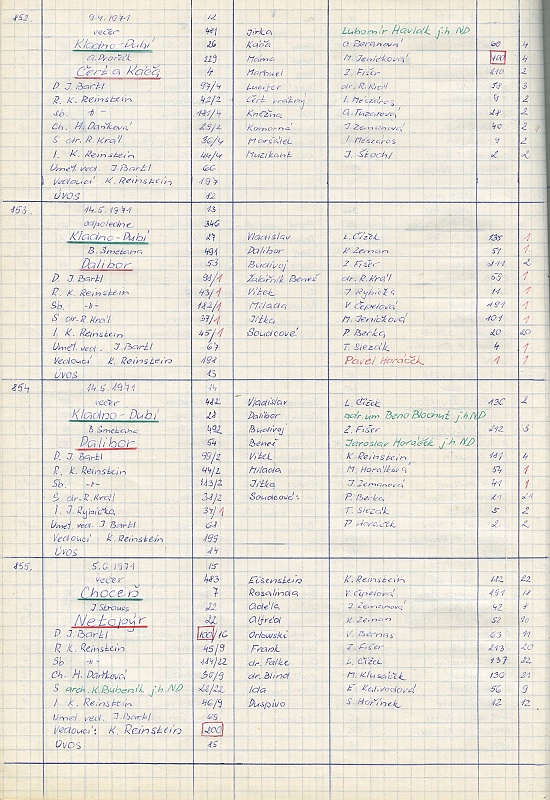 852. 9.4.1971 12
večer 481 Jirka Lubomír Havlák j.h. ND
Kladno-Dubí 26 Káča O. Beranová 60 4
A. Dvořák 229 Máma M. Jeníčková 100 4
Čert a Káča 4 Marbuel Z. Fišer 210 2
D. J. Bartl 97/4 Lucifer dr. R. Král 58 3
R. K. Reinstein 42/2 Čert vrátný I. Mészáros 9 2
Sb. -"- 111/4 Kněžna
Ch. H. Daňková 29/2 Komorná J. Zemanová 40 2
S dr. R. Král 36/4 Maršálek I. Mészáros 9 2
I. K. Reinstein 44/4 Muzikant J. Štochl 2 2
Uměl. ved. J. Bartl 66
Vedoucí K. Reinstein 197
ÚVOS 12
153. 14.5.1971 13
odpoledne 346
Kladno-Dubí 27 Vladislav L. Čížek 135 1
B. Smetana 491 Dalibor K. Zeman 51 1
Dalibor 53 Budivoj Z. Fišer 211 2
D. J. Bartl 98/1 Žalářník Beneš dr. R. Král 59 1
R. K. Reinstein 43/1 Vítek J. Rybička 11 1
Sb. -"- 112/1 Milada V. Čepelová 191 1
S dr. R. Král 37/1 Jitka M. Jeníčková 101 1
I. K. Reinstein 45/1 Soudcové P. Berka 20 20
Uměl. ved. J. Bartl 67 T. Slezák 4 1
Vedoucí K. Reinstein 198 Pavel Horáček 1 1
ÚVOS 13
854 14.5.1971 14
večer 482 Vladislav L. Čížek 136 2
Kladno-Dubí 28 Dalibor nár. um. Beno Blachut j.h. ND
B. Smetana 492 Budivoj Z. Fišer 212 3
Dalibor 54 Beneš Jaroslav Horáček j.h. ND
D. J. Bartl 99/2 Vítek K. Reinstein 111 4
R. K. Reinstein 44/2 Milada M. Horálková 54 1
Sb. -"- 113/2 Jitka J. Zemanová 41 1
S dr. R. Král 38/2 Soudcové: P. Berka 21 21
I. J. Rybička 34/1 T. Slezák 5 2
Uměl. ved. J. Bartl 68 P. Horáček 2 2
Vedoucí K. Reinstein 199
ÚVOS 14
155. 5.6.1971 15
večer 483 Eisenstein K. Reinstein 112 22
Choceň 7 Rosalinda V. Čepelová
J. Strauss 22 Adéla J. Zemanová 42
Netopýr 22 Alfréd K. Zeman 52 10
D. J. Bartl 100/16 Orlowski V. Bernas 63 11
R. K. Reinstein 45/9 Frank Z. Fišer 213 20
Sb -"- 114/22 dr. Falke L. Čížek 137 22
Ch. H. Daňková 30/9 dr. Blind M. Klusáček 130 21
S arch. K. Bubeník j.h. ND 22/22 Ida E. Kalivodová 56 9
I. K. Reinstein 46/9 Duspivo S. Hořínek 12 12
Uměl. ved. J. Bartl 69
Vedoucí: K. Reinstein 200
ÚVOS 15